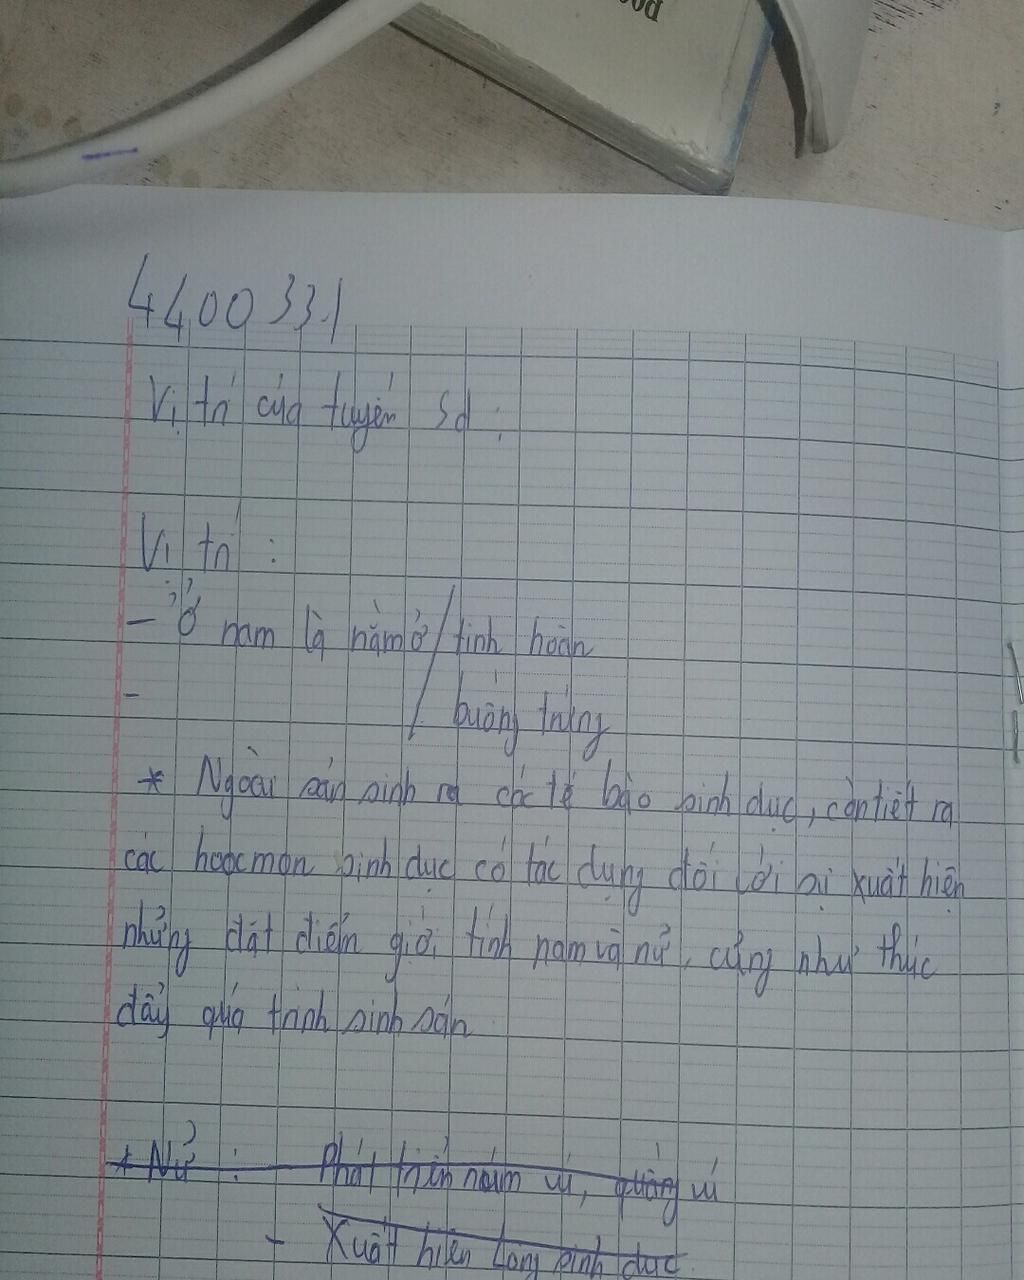 4400331
Vị trí của tuyến Sd :
Vị trí :
- Ở nam là nằm ở / tinh hoàn
- / buồng trứng
* Ngoài sản sinh ra các tế bào sinh dục, còn tiết ra
các hoocmon sinh dục có tác dụng đối với sự xuất hiện
những đặt điểm giới tính nam và nữ, cũng như thúc
đẩy quá trình sinh sản
* Nữ : Phát triển núm vú, quầng vú
- Xuất hiện lông sinh dục